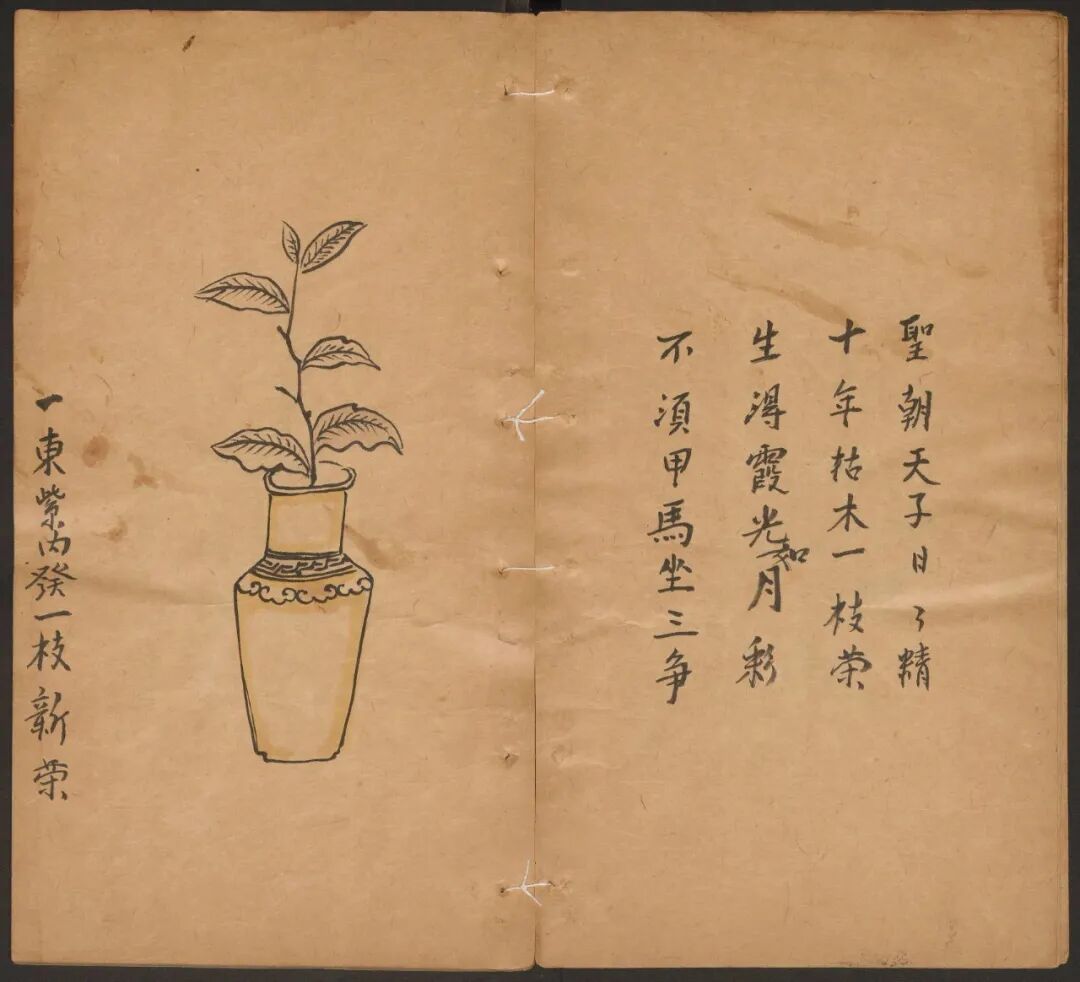 聖朝天子日々精
十年枯木一枝荣
生得霞光如月彩
不須甲馬坐三争
一東紫内發一枝新荣